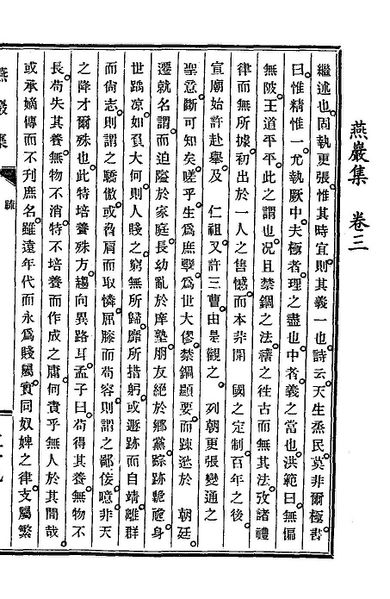 燕巖集 卷三
繼述也。固執更張。惟其時宜。則其義一也。詩云天生烝民。莫非爾極。書
曰惟精惟一。允執厥中。夫極者。理之盡也。中者。義之當也。洪範曰。無偏
無陂。王道平平。此之謂也。况且禁錮之法。績之徃古而無其法。攷諸禮
律而無所據。初出於一人之售憾。而本非開 國之定制。百年之後。
宣廟始許赴擧。及 仁祖又許三曹。由是觀之。 列朝更張變通之
聖意。斷可知矣。嗟乎。生爲庶孼。爲世大僇。禁錮顯要。而踈逖於 朝廷。
遷就名謂。而迫隘於家庭。長幼亂於庠塾。朋友絶於鄉黨。蹤跡齟齬。身
世踽凉。如負大何。則人賤之。窮無所歸。靡所措躬。或遯跡而自靖。離群
而尙志。則謂之驕傲。或脅肩而取憐。屈膝而苟容。則謂之鄙侫。噫。非天
之降才爾殊也。此特培養殊方。趨向異路耳。孟子曰。苟得其養。無物不
長。苟失其養。無物不消。特不培養而作成之。庸何責乎無人於其間哉。
或承嫡傳而不刋庶名。雖遠年代而永爲賤屬。實同奴婢之律。支屬繁
燕巖集
疏